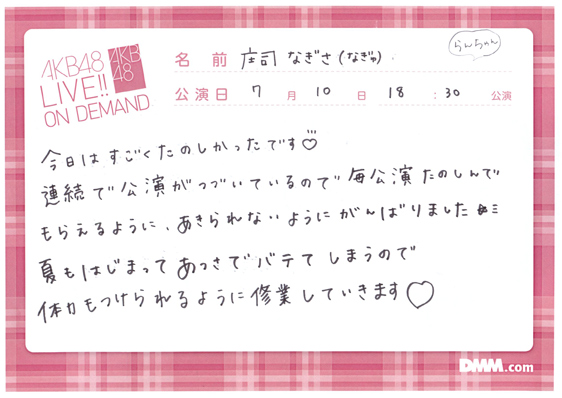 AKB48
LIVE!!
ON DEMAND
AKB
48
名前 庄司 なぎさ(なぎゅ)
らんちゃん
公演日 7 月 10 日 18 : 30 公演
今日はすごくたのしかったです♡
連続で公演がつづいているので毎公演たのしんで
もらえるように、あきられないようにがんばりました
夏もはじまってあつさでバテてしまうので
体力もつけられるように修業していきます♡
DMM.com